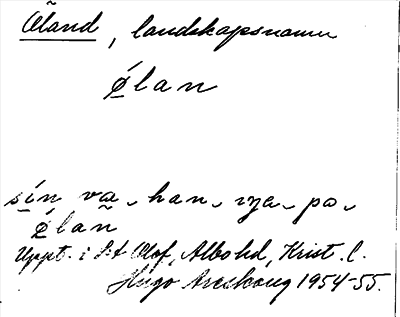 Öland, landskapsnamn
Ølan
sin va han nya på
Ølan
Uppt. i St Olof, Albo hd, Krist. l.
Hugo Areskoug 1954-55.